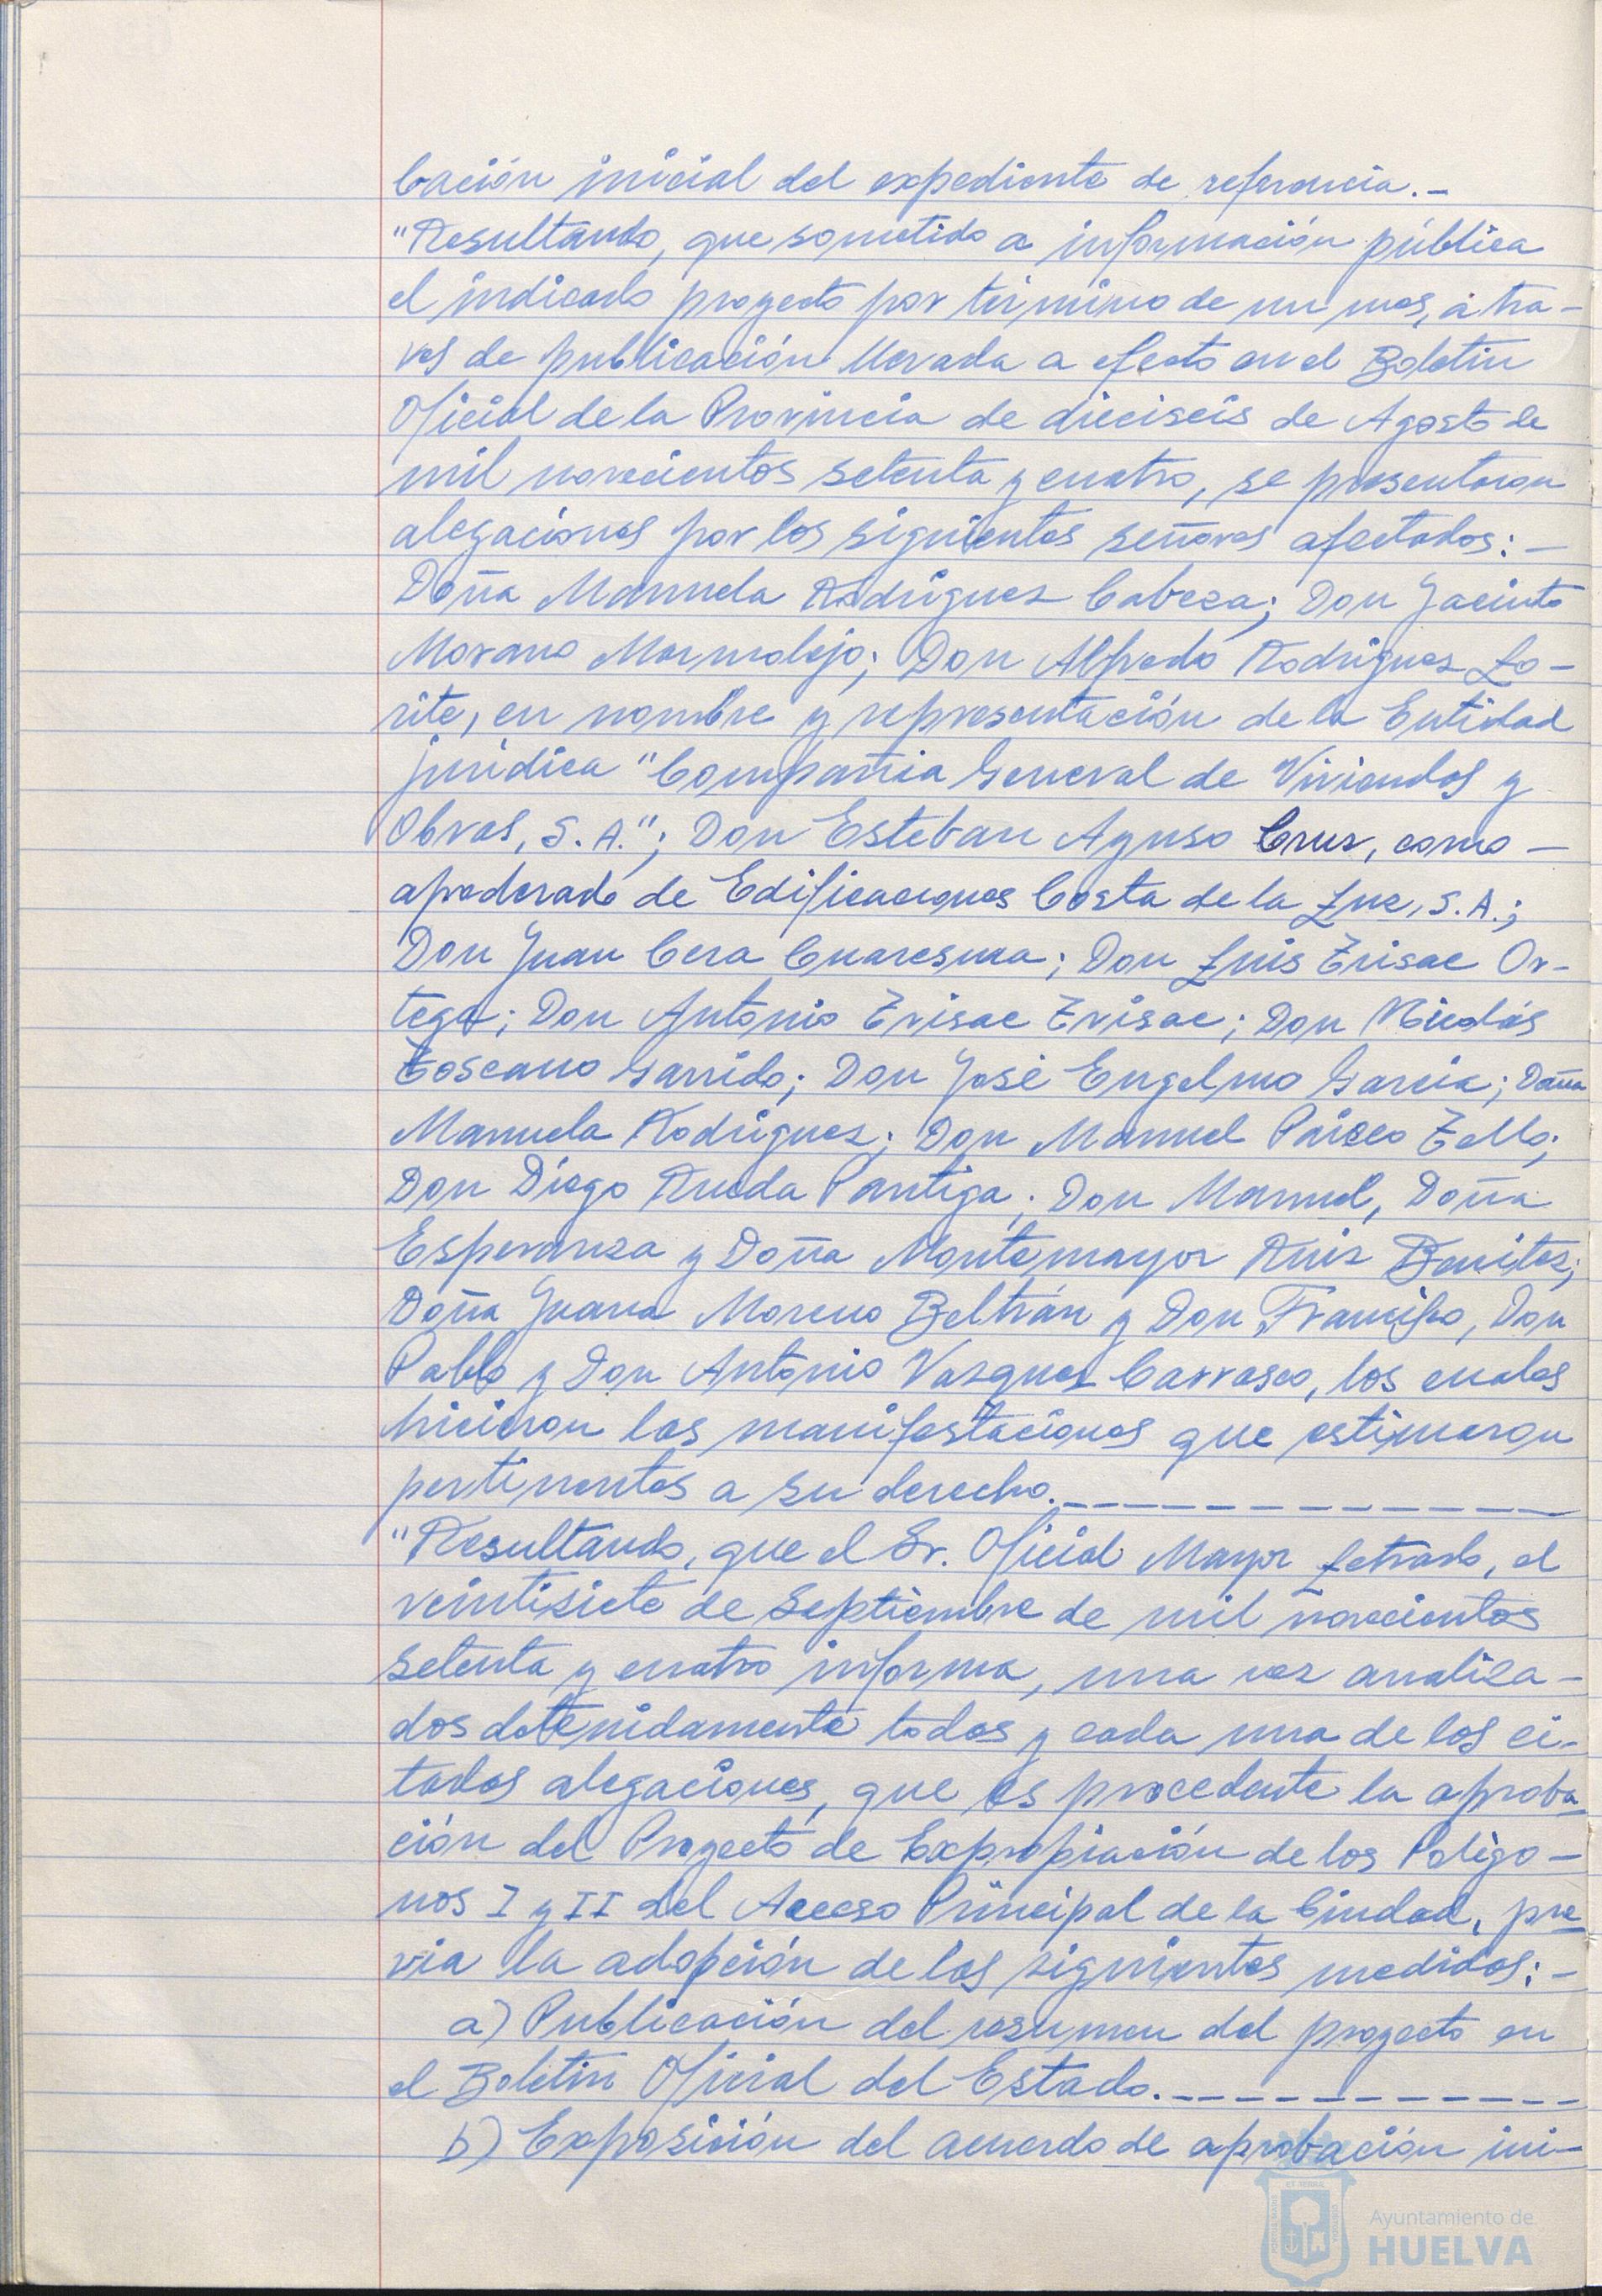 bación inicial del expediente de referencia.-
"Resultando, que sometido a información pública
el indicado proyecto por término de un mes, a tra-
ves de publicación llevada a efecto en el Boletín
Oficial de la Provincia de dieciseis de Agosto de
mil novecientos setenta y cuatro, se presentaron
alegaciones por los siguientes señores afectados:-
Doña Manuela Rodríguez Cabeza; Don Jacinto
Morano Marmolejo; Don Alfredo Rodriguez Lo-
rite, en nombre y representación de la Entidad
jurídica "Compañia General de Viviendas y
Obras, S.A."; Don Esteban Ayuso Cruz, como -
apoderado de Edificaciones Costa de la Luz, S.A.;
Don Juan Cera Cuaresma; Don Luis Trisac Or-
tega; Don Antonio Trisac Trisac; Don Nicolás
Toscano Garrido; Don José Engelmo García; Doña
Manuela Rodriguez; Don Manuel Paizco Tello;
Don Diego Rueda Pantiga; Don Manuel, Doña
Esperanza y Doña Montemayor Ruiz Benitez;
Doña Juana Moreno Beltrán y Don Francisco, Don
Pablo y Don Antonio Vazquez Carrasco, los cuales
hicieron las manifestaciones que estimaron
pertinentes a su derecho.
"Resultando, que el Sr. Oficial Mayor Letrado, el
veintisiete de Septiembre de mil novecientos
setenta y cuatro informa, una vez analiza-
dos detenidamente todas y cada una de las ci-
tadas alegaciones, que es procedente la aproba-
ción del Proyecto de Expropiación de los Polígo-
nos I y II del Acceso Principal de la Ciudad, pre
via la adopción de las siguientes medidas:-
a) Publicación del resumen del proyecto en
el Boletín Oficial del Estado.
b) Exposición del acuerdo de aprobación ini-
Ayuntamiento de
HUELVA